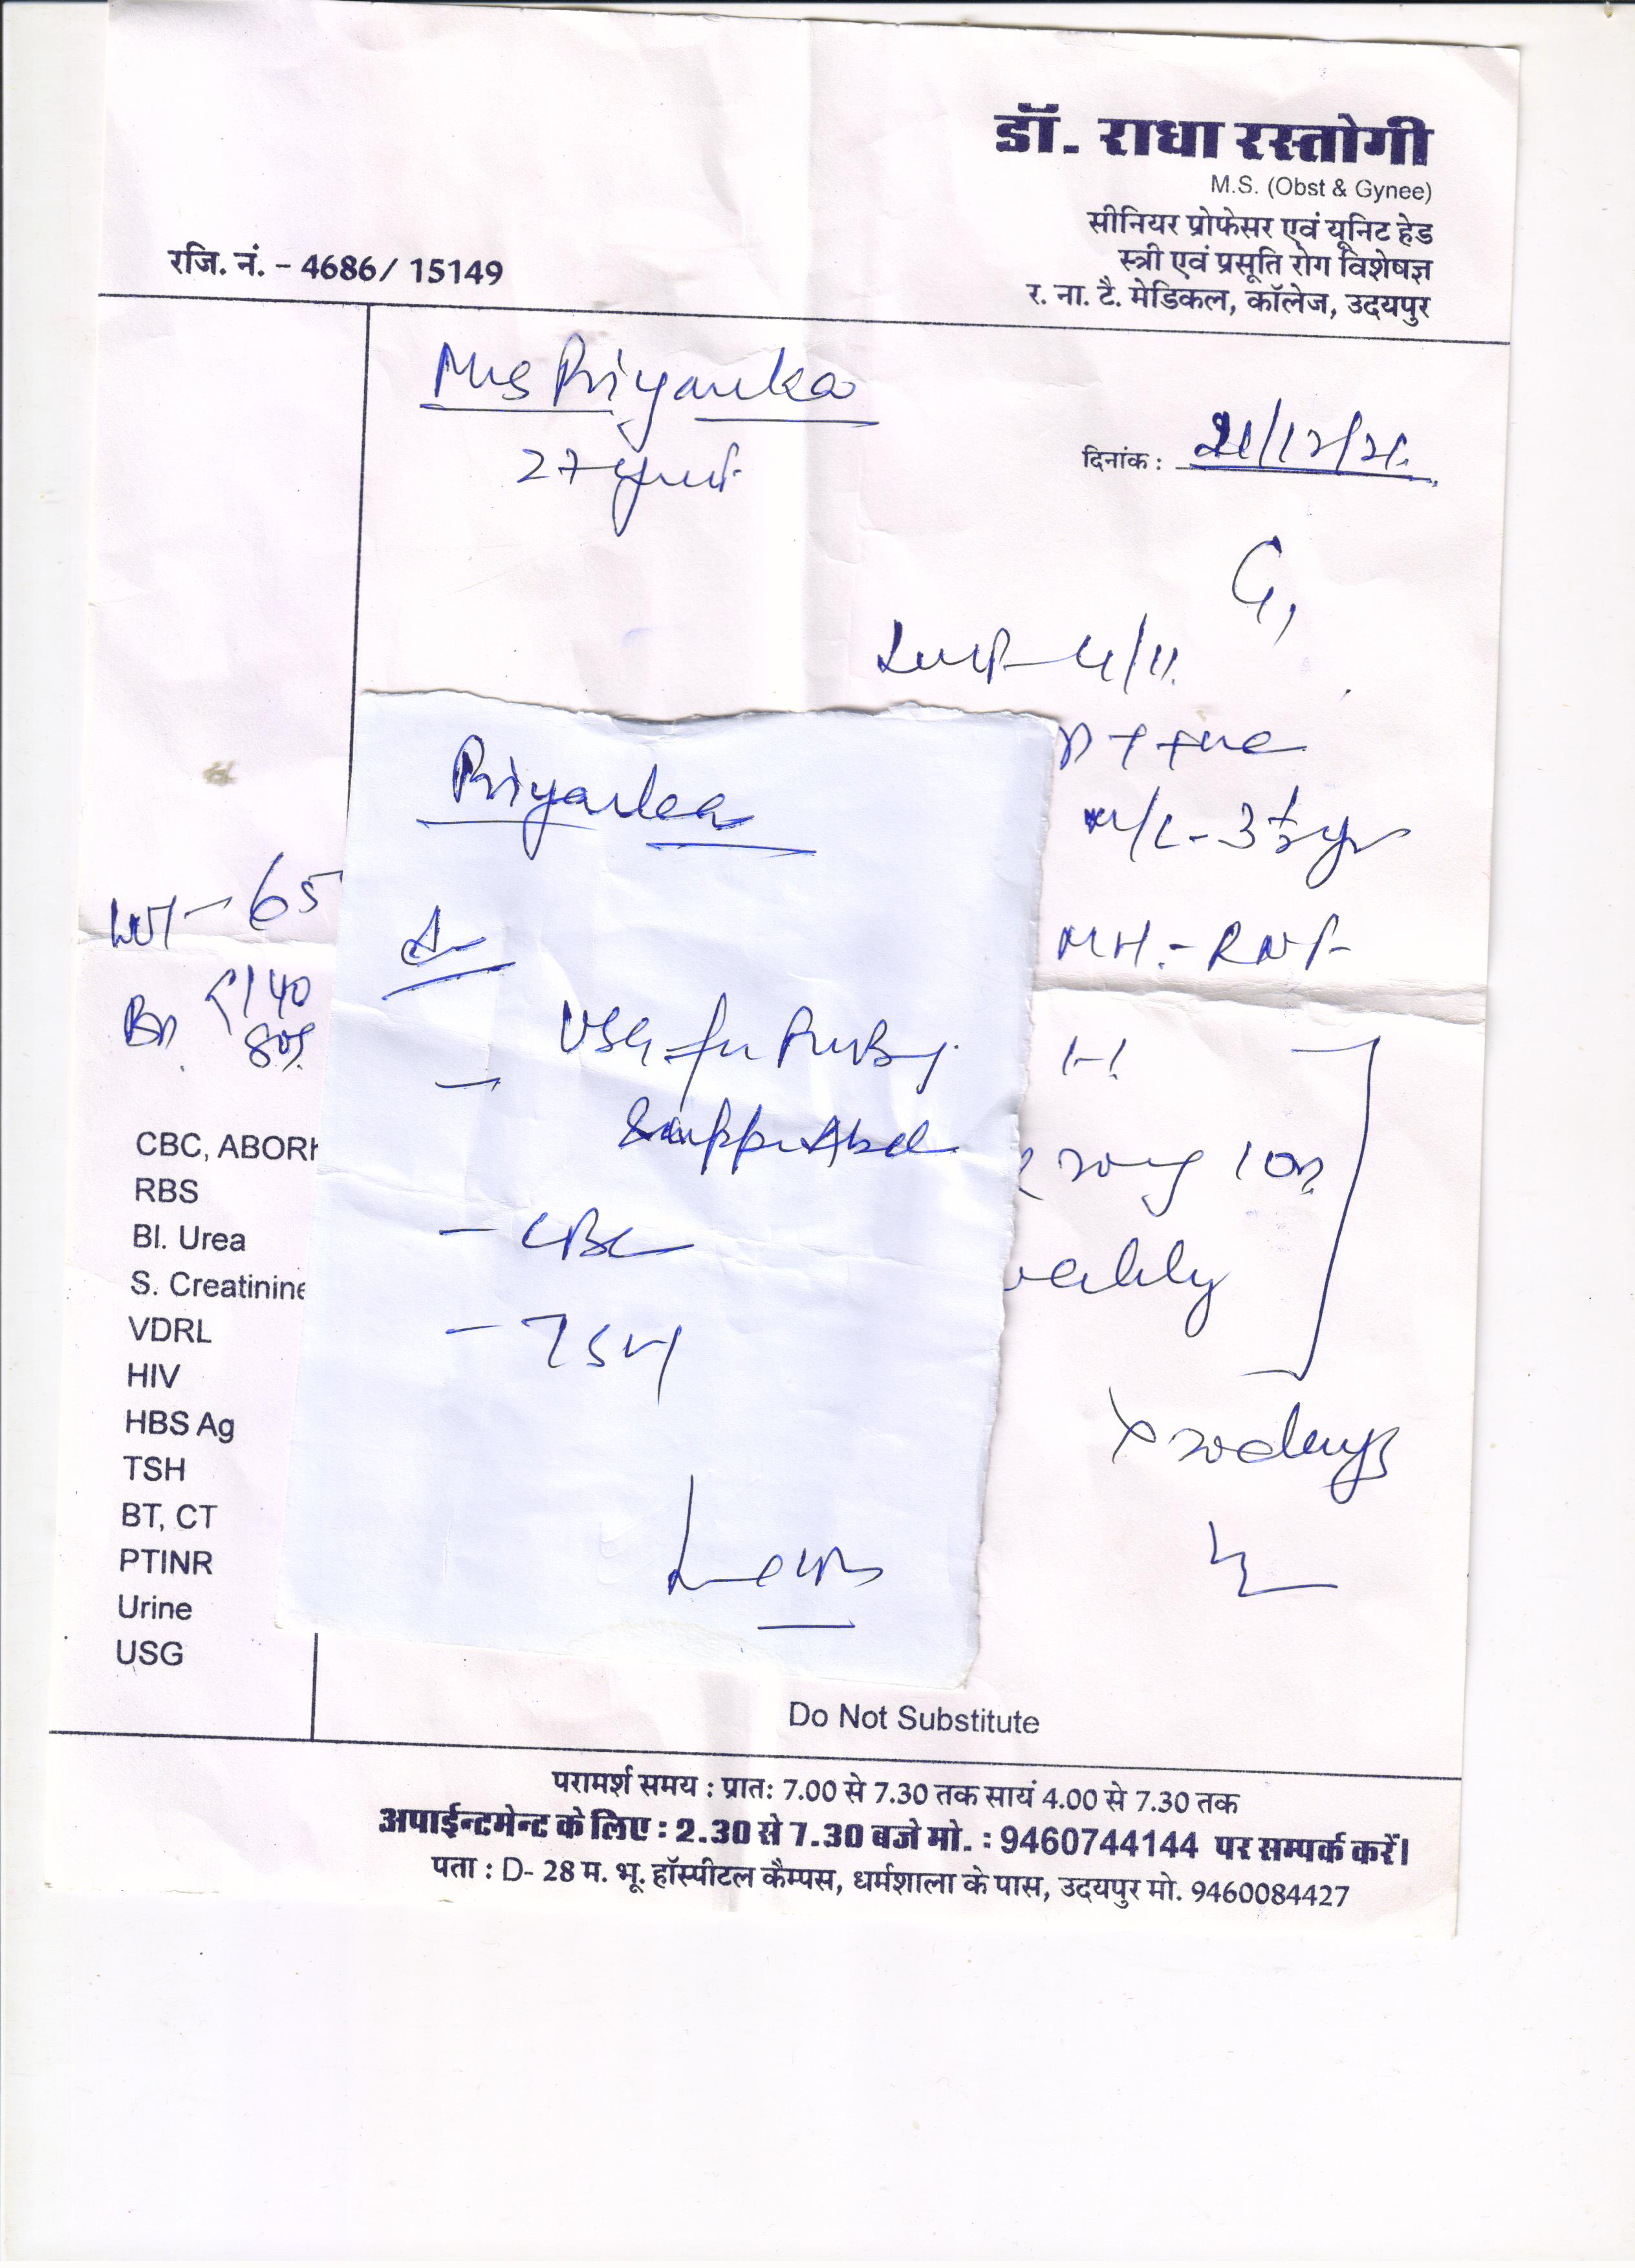 डॉ. राधा रस्तोगी
M.S. (Obst & Gynee)
सीनियर प्रोफेसर एवं यूनिट हेड
स्त्री एवं प्रसूति रोग विशेषज्ञ
र. ना. टै. मेडिकल, कॉलेज, उदयपुर
रजि. नं. - 4686/ 15149
Mrs Priyanka
27
दिनांक :
G1
LMP 4/11
M/L - 3½ yr
MH. - RNT
Wt - 65
BP 140
80
CBC, ABORH
RBS
Bl. Urea
S. Creatinine
VDRL
HIV
HBS Ag
TSH
BT, CT
PTINR
Urine
USG
Priyanka
USG for
- CBC
- TSH
weekly
x 20 days
Do Not Substitute
परामर्श समय : प्रातः 7.00 से 7.30 तक सायं 4.00 से 7.30 तक
अपाईन्टमेन्ट के लिए : 2.30 से 7.30 बजे मो. : 9460744144 पर सम्पर्क करें।
पता : D- 28 म. भू. हॉस्पीटल कैम्पस, धर्मशाला के पास, उदयपुर मो. 9460084427